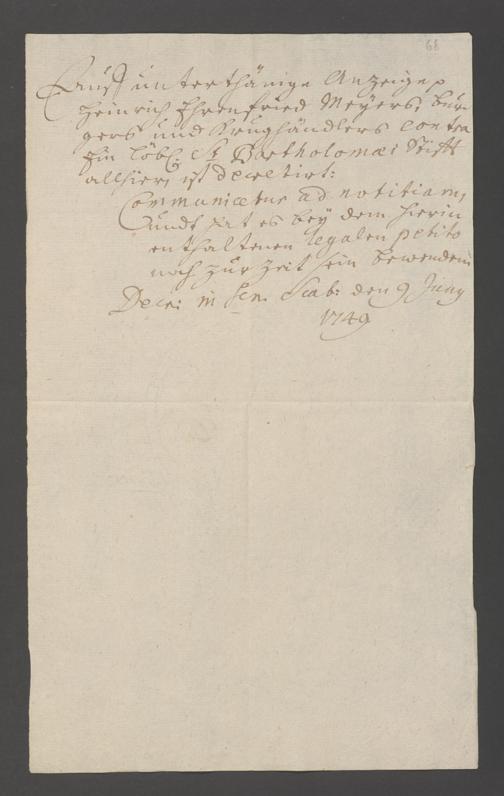 68
Auff unterthänige Anzeige
Heinrich Ehrenfried Meyers, bür-
gers und Krughändlers contra
Ein Löbl: St Bartholomæi Stifft
allhier, ist decretirt:
Communicetur ad notitiam,
undt hat es bey dem hierin
enthaltenen legalen petito
noch zur Zeit sein bewenden
Decr: in Sen. Scab: den 9 Juny
1749